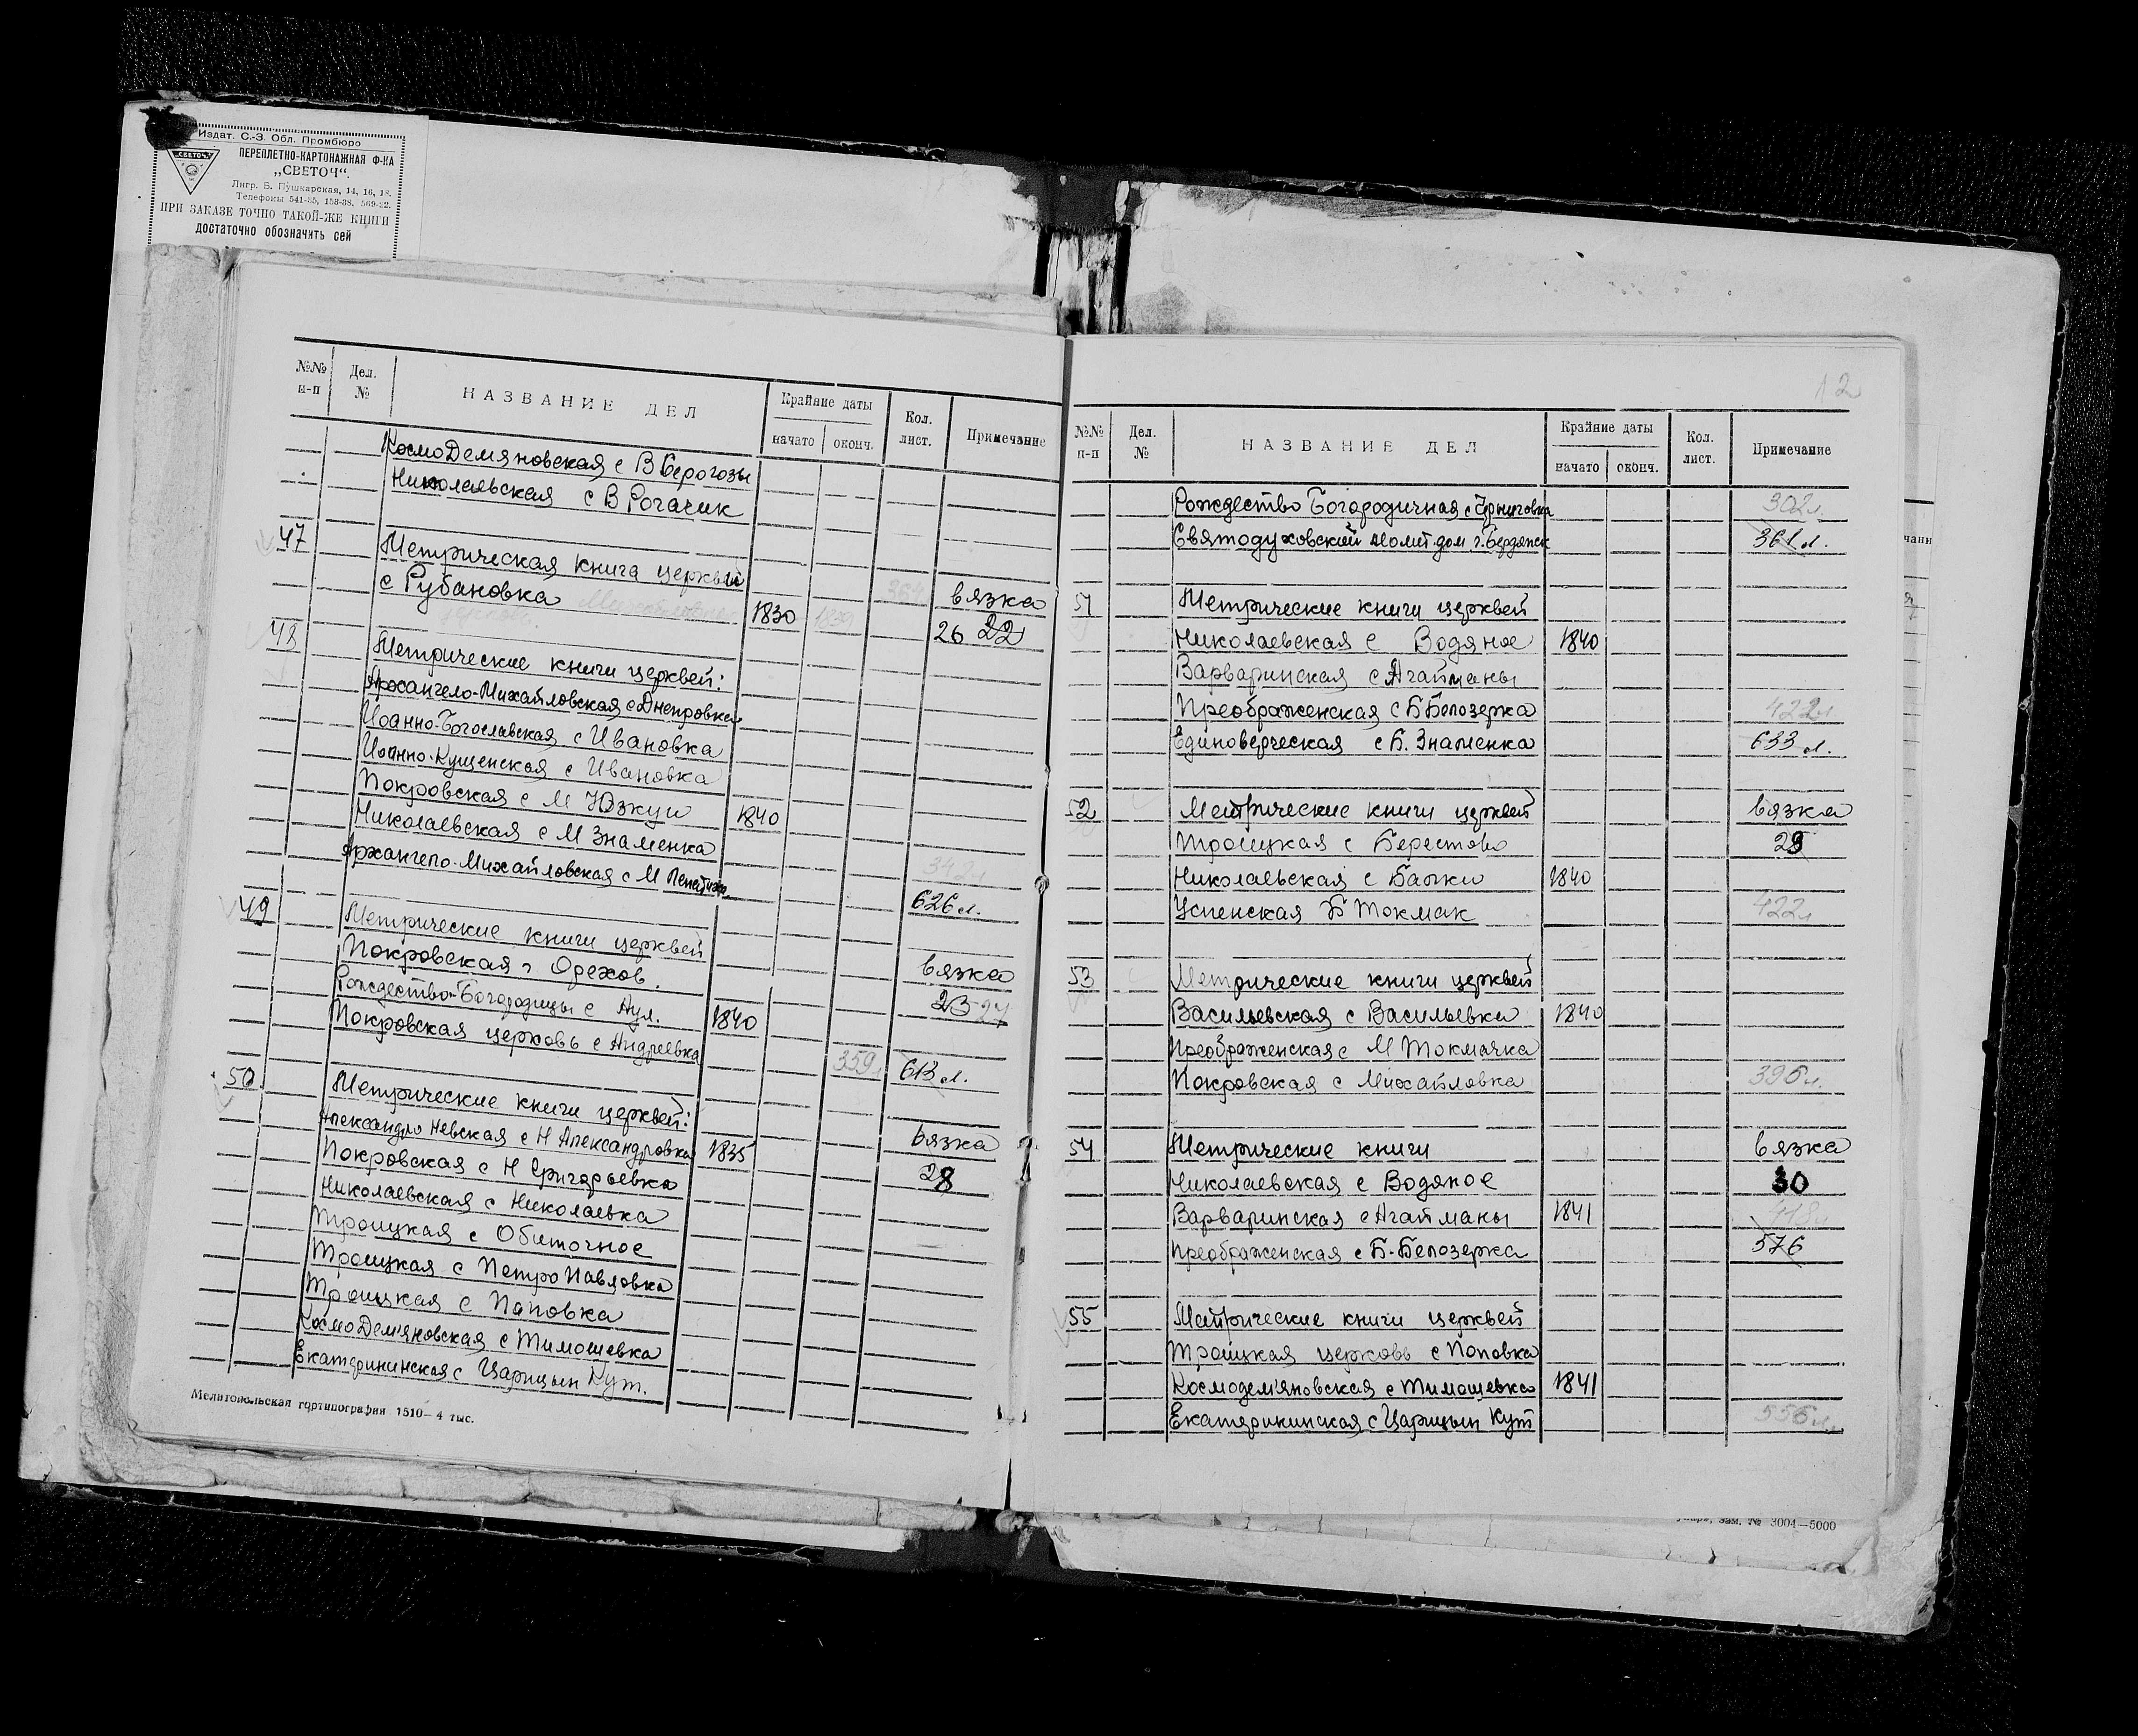 Издат. С.-З. Обл. Промбюро
„СВЕТОЧ“
ПЕРЕПЛЕТНО-КАРТОНАЖНАЯ Ф-КА
„СВЕТОЧ“.
Лнгр. Б. Пушкарская, 14, 16, 18.
Телефоны 541-35, 153-38, 569-22.
ПРИ ЗАКАЗЕ ТОЧНО ТАКОЙ-ЖЕ КНИГИ
достаточно обозначить сей
№№ п-п Дел. № НАЗВАНИЕ ДЕЛ Крайние даты начато оконч. Кол. лист. Примечание
КосмоДемяновская с В Серогозы
Николаевская с В Рогачик
47 Метрическая книга церквей вязка
с Рубановка 1830 26 22
48 Метрические книги церквей:
Архангело-Михайловская с Днепровка
Иоанно-Богославская с Ивановка
Иоанно-Кущенская с Ивановка
Покровская с М Юзкуи 1840
Николаевская с М Знаменка 342л
Архангело-Михайловская с М Лепетиха 626 л.
49 Метрические книги церквей
Покровская г Орехов. вязка
Рождество-Богородицы с Аул. 1840 23
Покровская церковь с Андреевка 359л 613 л.
50 Метрические книги церквей:
Александро Невская с Н Александровка 1835 вязка
Покровская с Н Григорьевка 28
Николаевская с Николаевка
Троицкая с Обиточное
Троицкая с ПетроПавловка
Троицкая с Поповка
КосмоДемяновская с Тимошевка
Екатерининская с Царицын Кут.
Мелитопольская гортипография 1510—4 тыс.
12
№№ п-п Дел. № НАЗВАНИЕ ДЕЛ Крайние даты начато оконч. Кол. лист. Примечание
Рождество Богородичная с Черниговка 302л.
Святодуховский молит.дом г. Бердянск 361 л.
51 Метрические книги церквей
Николаевская с Водяное 1840
Варваринская с Агайманы
Преображенская с Б Белозерка 422л
Единоверческая с Б. Знаменка 633 л.
52 Метрические книги церквей вязка
Троицкая с Берестово 28
Николаевская с Балки 1840
Успенская Б Токмак 422л
53 Метрические книги церквей
Васильевская с Васильевка 1840
Преображенская с М Токмачка
Покровская с Михайловка 395л.
54 Метрические книги вязка
Николаевская с Водяное 30
Варваринская с Агайманы 1841 418л
Преображенская с Б-Белозерка 576
55 Метрические книги церквей
Троицкая церковь с Поповка
Космодемяновская с Тимошевка 1841
Екатерининская с Царицын Кут 556л.
зак. № 3004—5000